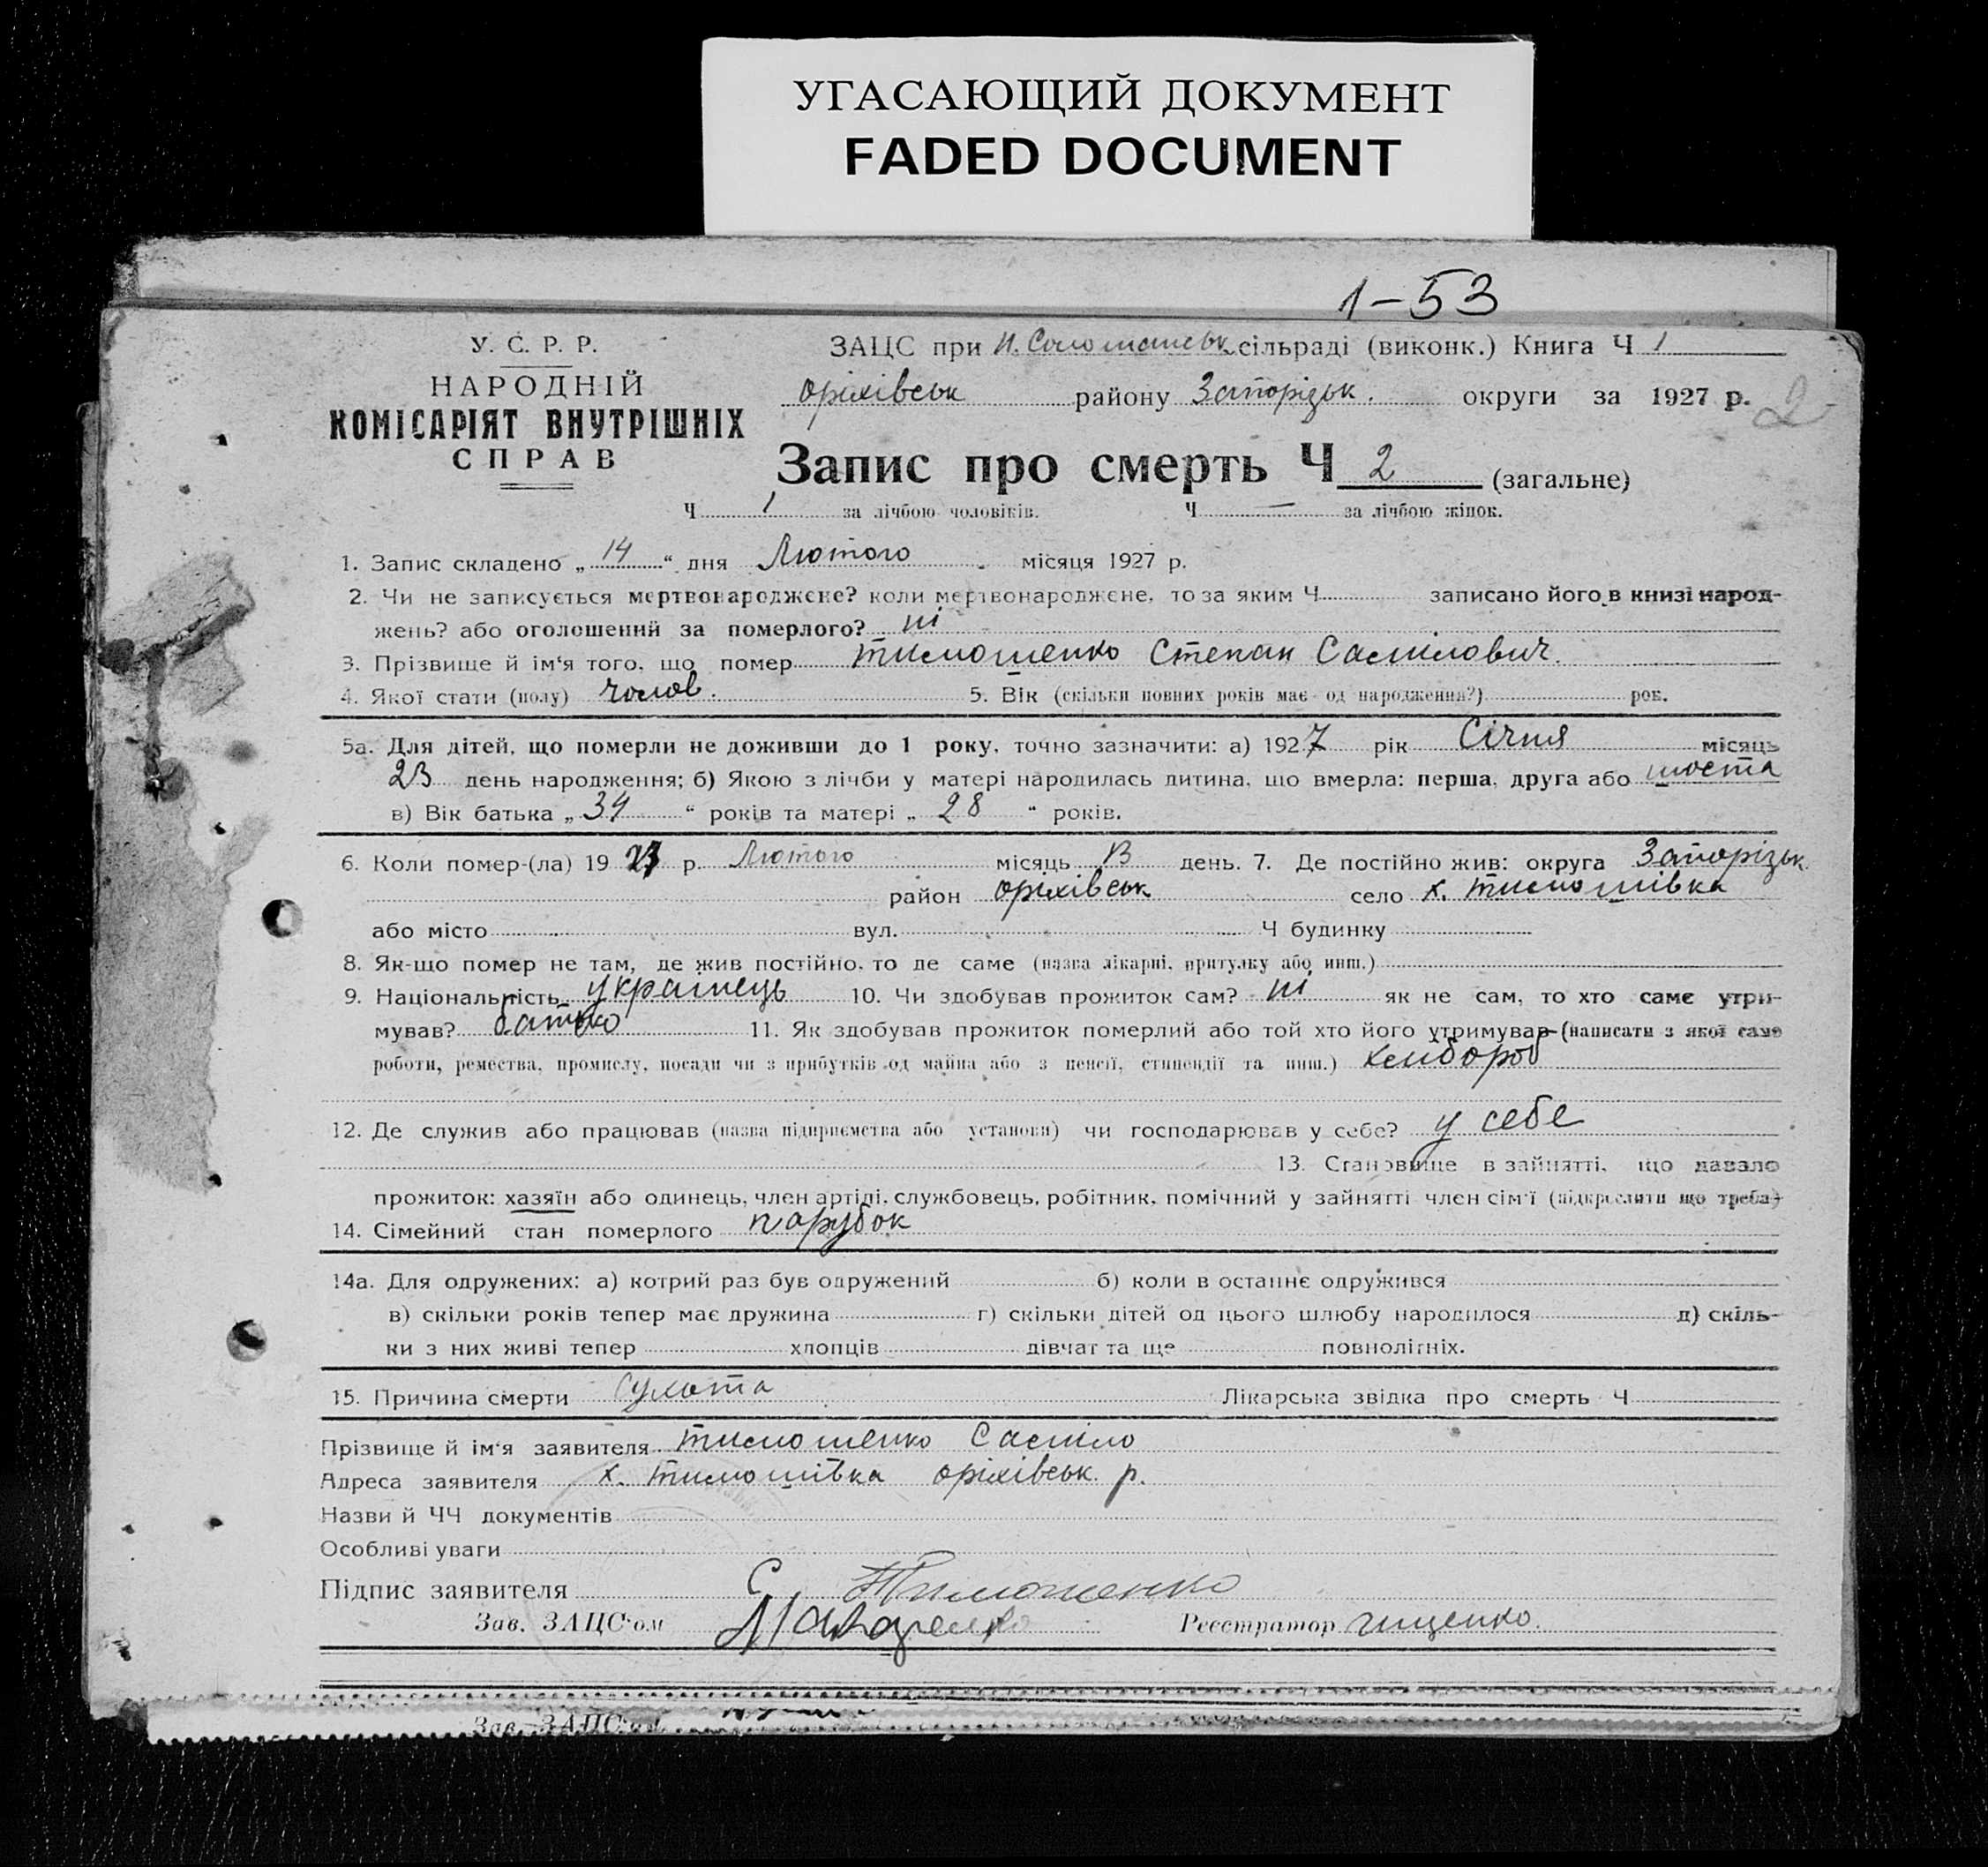 УГАСАЮЩИЙ ДОКУМЕНТ
FADED DOCUMENT
1-53
У. С. Р. Р.
НАРОДНІЙ
КОМІСАРІЯТ ВНУТРІШНІХ
СПРАВ
ЗАЦС при сільраді (виконк.) Книга Ч 1
Оріхівськ району Запорізьк. округи за 1927 р.
2
Запис про смерть Ч 2 (загальне)
Ч 1 за лічбою чоловіків. Ч — за лічбою жінок.
1. Запис складено „ 14 “ дня Лютого місяця 1927 р.
2. Чи не записується мертвонароджене? коли мертвонароджене, то за яким Ч записано його в книзі народ-
жень? або оголошений за померлого? ні
3. Прізвище й ім‘я того, що помер Тимошенко Степан Самілович.
4. Якої стати (полу) чолов. 5. Вік (скільки повних років має од народження?) рок.
5а. Для дітей, що померли не доживши до 1 року, точно зазначити: а) 1927 рік Січня місяць
23 день народження; б) Якою з лічби у матері народилась дитина, що вмерла: перша, друга або шоста
в) Вік батька „ 34 “ років та матері „ 28 “ років.
6. Коли помер-(ла) 19 27 р. Лютого місяць 13 день. 7. Де постійно жив: округа Запорізьк.
район Оріхівськ село х. Тимошівка
або місто вул. Ч будинку
8. Як-що помер не там, де жив постійно, то де саме (назва лікарні, притулку або инш.)
9. Національність українець 10. Чи здобував прожиток сам? ні як не сам, то хто саме утри-
мував? батько 11. Як здобував прожиток померлий або той хто його утримував (написати з якої саме
роботи, ремества, промислу, посади чи з прибутків од майна або з пенсії, стипендії та инш.) хлібороб
12. Де служив або працював (назва підприємства або установи) чи господарював у себе? у себе
13. Становище в зайнятті, що давало
прожиток: хазяїн або одинець, член артілі, службовець, робітник, помічний у зайнятті член сім‘ї (підкреслити що треба)
14. Сімейний стан померлого парубок
14а. Для одружених: а) котрий раз був одружений б) коли в останнє одружився
в) скільки років тепер має дружина г) скільки дітей од цього шлюбу народилося д) скіль-
ки з них живі тепер хлопців дівчат та ще повнолітніх.
15. Причина смерти сухота Лікарська звідка про смерть Ч
Прізвище й ім‘я заявителя Тимошенко Саміло
Адреса заявителя х. Тимошівка Оріхівськ. р.
Назви й ЧЧ документів
Особливі уваги
Підпис заявителя С Тимошенко
Зав. ЗАЦС‘ом Реєстратор Гищенко.
Зав. ЗАЦС‘ом